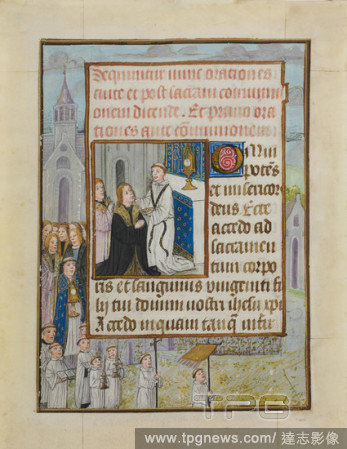 Sequuntur nunc orationes
ante et post sacram communi
onem dicende. Et primo ora
tiones ante communionem
Omni
potens
et misericor
deus Ecce
accedo ad
sacramen
tum corpo
ris et sanguinis unigeniti fi
lii tui domini nostri ihesu xpi
Accedo inquam tanqͣ infir
TPG
www.tpgnews.com/達志影像